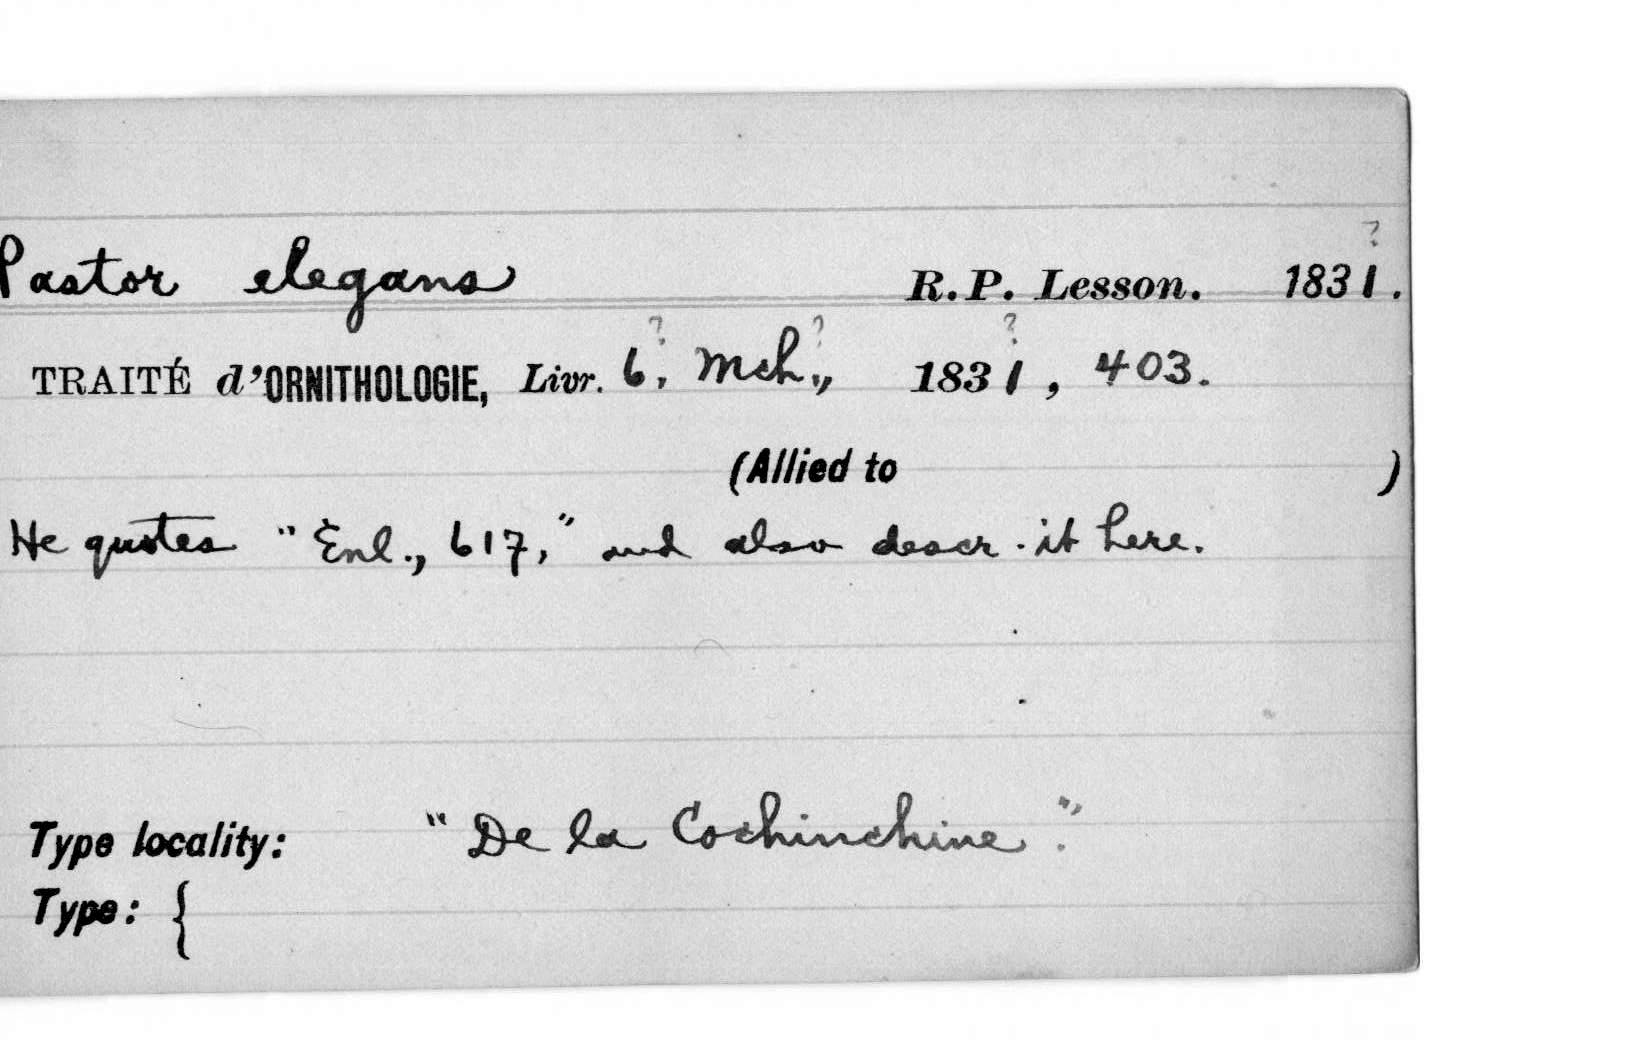 ?
Pastor elegans R.P. Lesson. 1831.
? ? ?
TRAITÉ d'ORNITHOLOGIE, Livr. 6, Mch., 1831, 403.
(Allied to )
He quotes "Enl., 617," and also descr. it here.
Type locality: "De la Cochinchine."
Type: {